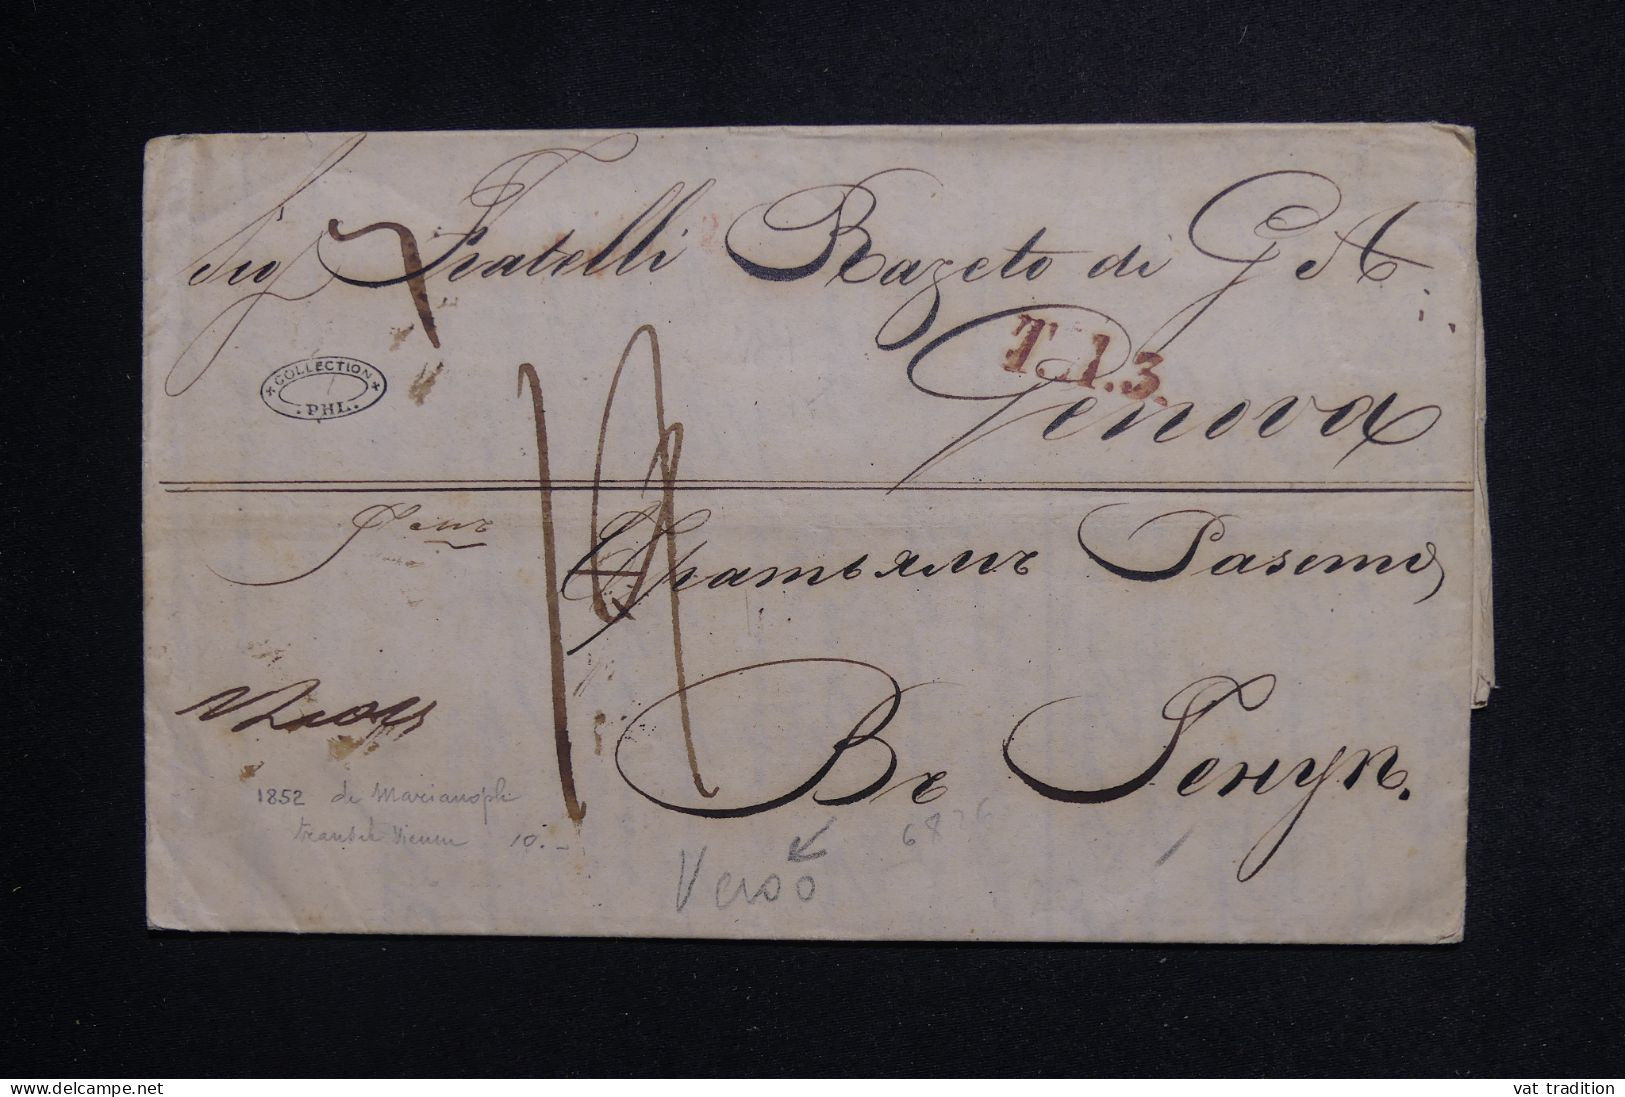 Sig Fratelli Razeto di G A
T.1.3.
Genova
COLLECTION
PHL.
Братьямъ Разето
Въ Генуи.
1852 de Marianopli
transit Vienne 10.-
6826
Verso
delcampe.net
vat tradition